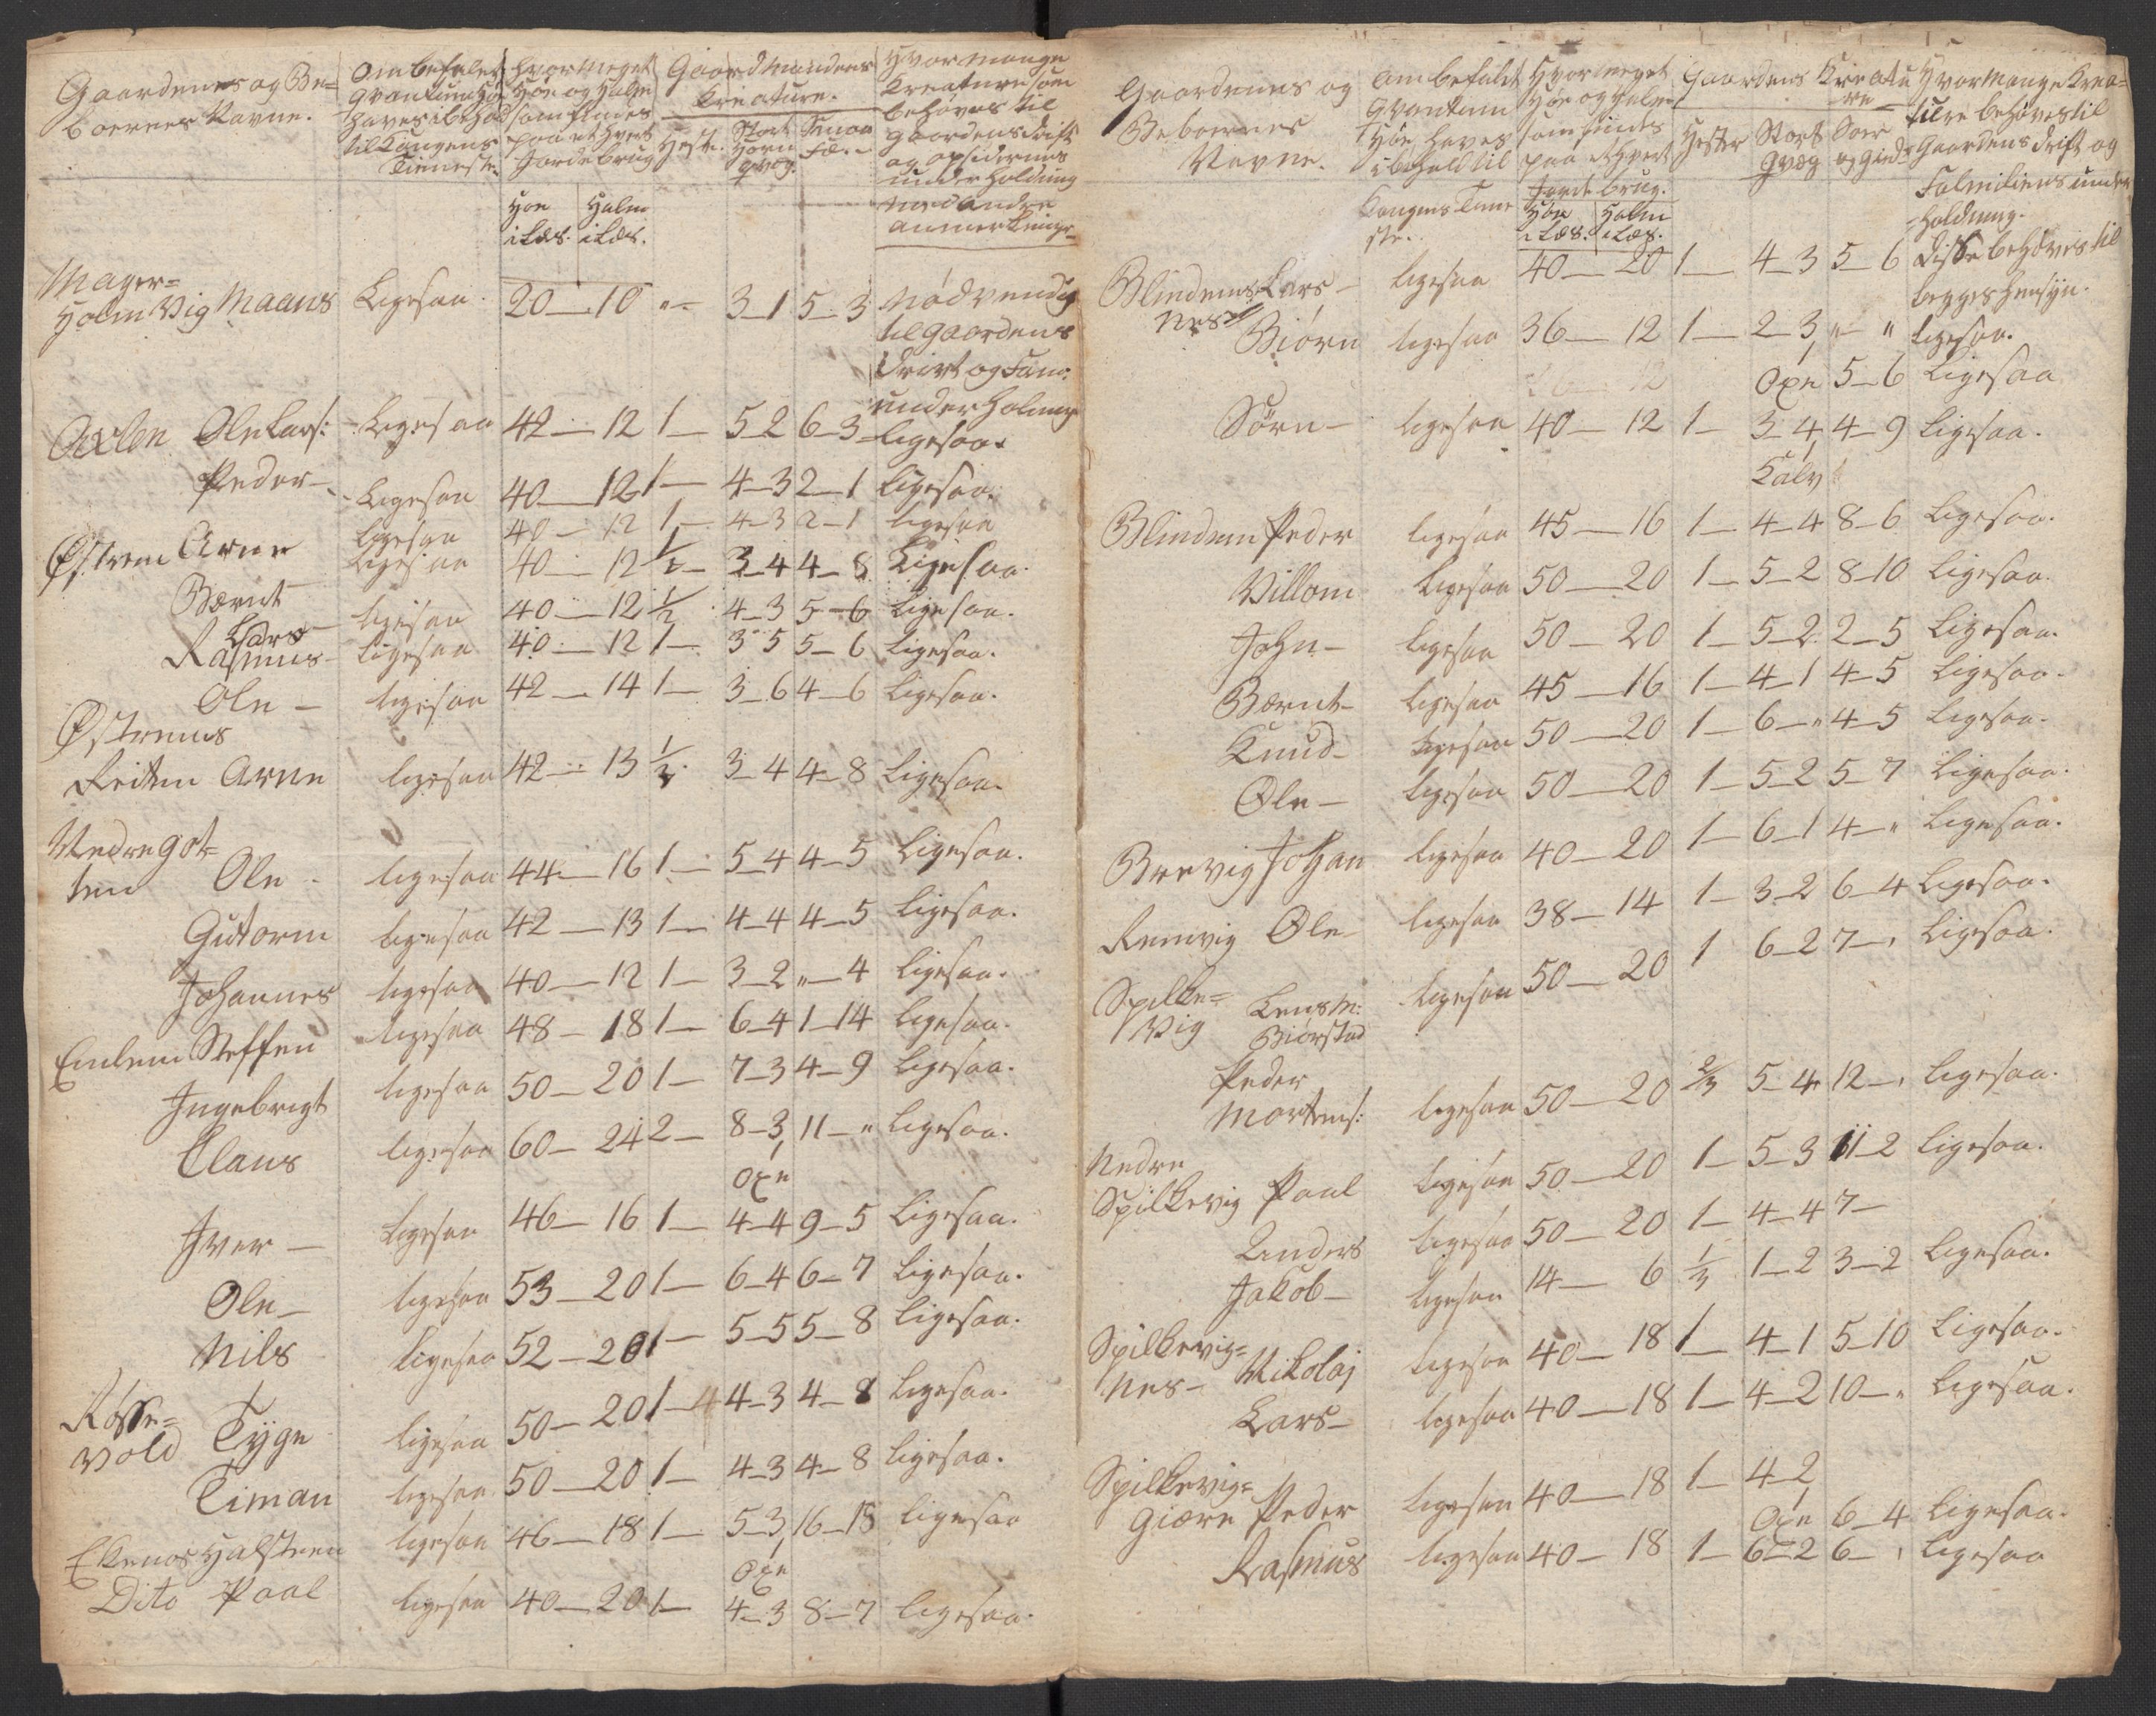 Gaardenes og Be=
boernes Navne.
Ombefalet
Qvantum Høe
haves i behold
til Kongens
Tieneste.
hvor Meget
Høe og Halm
som findes
paa et hvert
Jordebrug
Høe i Læs. Halm i Læs.
Gaardmandens
Kreature.
Heste. Stort Horn qvæg. Smaa Fæ.
Hvor mange
Kreature som
behøves til
gaardens drift
og opsidernes
underholdning
med andre
anmerkninger
Mager=
Holm Vig Maans Ligesaa. 20—10 „— 3—1 5—3 Nødvendig
til gaardens
drivt og Fam:
underholdning
Oxlen Ole Lars: Ligesaa 42—12 1— 5—2 6—3 Ligesaa
Peder— Ligesaa 40—12 1— 4—3 2—1 Ligesaa.
Ligesaa 40—12 1— 4—3 2—1 Ligesaa
Østrem Arne Ligesaa 40—12 1/2— 3—4 4—8 Ligesaa.
Bærnt— Ligesaa 40—12 1/2 4—3 5—6 Ligesaa.
Lars
Rasmus— Ligesaa 40—12 1— 3 5 5—6 Ligesaa.
Ole— Ligesaa 42—14 1— 3—6 4—6 Ligesaa.
Østrems
Reiten Arne Ligesaa 42—13 1/2 3—4 4—8 Ligesaa.
Nedregot=
ten Ole Ligesaa 44—16 1— 5—4 4—5 Ligesaa.
Gutorm Ligesaa 42—13 1— 4—4 4—5 Ligesaa.
Johannes Ligesaa 40—12 1— 3—2 „—4 Ligesaa.
Emlem Steffen Ligesaa 48—18 1— 6—4 1—14 Ligesaa.
Ingebrigt Ligesaa 50—20 1— 7—3 4—9 Ligesaa.
Claus Ligesaa 60—24 2— 8—3, 11—„ Ligesaa.
1 Oxe
Iver— Ligesaa 46—16 1— 4—4 9—5 Ligesaa.
Ole— Ligesaa 53—20 1— 6—4 6—7 Ligesaa.
Nils Ligesaa 52—20 1— 5—5 5—8 Ligesaa.
Røsse=
vold Tyge Ligesaa 50—20 1— 4—3 4—8 Ligesaa.
Timan Ligesaa 50—20 1— 4—3 4—8 Ligesaa.
Ekenos Halsteen Ligesaa 46—18 1— 5—3, 16—18 Ligesaa
1 Oxe
Dito Paal Ligesaa 40—20 1— 4—3 8—7 Ligesaa.
Gaardenes og
Beboernes
Navne.
Ambefaldt
Qvantum
Høe, haves
i behold til
Kongens Tiene
ste.
Hvor meget
Høe og halm
som findes
paa et hvert
Jorde brug.
Høe i Læs. Halm i Læs.
Gaardens Kreatu
re
Hester Stort qvæg Soer og Giede
Hvor mange Krea=
ture behøves til
Gaardens drift og
Falmiliens under
holdning.
Blindems Lars— Ligesaa 40—20 1— 4—3 5—6 Disse behøves til
begges hensyn.
Nes
Biørn Ligesaa 36—12 1— 2—3, „—„ Ligesaa.
1 Oxe 5—6 Ligesaa
Sørn— Ligesaa 40—12 1— 3—4, 4—9 Ligesaa.
1 Kalv
Blindem Peder Ligesaa 45—16 1— 4—4 8—6 Ligesaa.
Villom Ligesaa 50—20 1— 5—2 8—10 Ligesaa.
John— Ligesaa 50—20 1— 5—2 2—5 Ligesaa.
Bærnt— Ligesaa 45—16 1— 4—1 4—5 Ligesaa.
Knud— Ligesaa 50—20 1— 6—„ 4—5 Ligesaa.
Ole— Ligesaa 50—20 1— 5—2 5—7 Ligesaa.
Brevig Johan Ligesaa 40—20 1— 6—1 4—„ Ligesaa.
Remvig Ole— Ligesaa 38—14 1— 3—2 6—4 Ligesaa.
Spilke=
Vig Lensm:
Biørstad Ligesaa 50—20 1 6—2 7—, Ligesaa.
Peder
Mortens: Ligesaa 50—20 2/3 5—4 12—, Ligesaa.
Nedre
Spilkevig Paul Ligesaa 50—20 1— 5—3 11—2 Ligesaa.
Anders Ligesaa 50—20 1— 4—4 7—
Jakob— Ligesaa 14—6 1/3 1—2 3—2 Ligesaa.
Spilkevig=
nes— Nikolaj Ligesaa 40—18 1— 4—1 5—10 Ligesaa.
Lars— Ligesaa 40—18 1— 4—2 10—„ Ligesaa.
Spilkevig=
Giære Peder Ligesaa 40—18 1— 4—2,
1 Oxe 6—4 Ligesaa.
Rasmus Ligesaa 40—18 1— 6—2 6—, Ligesaa